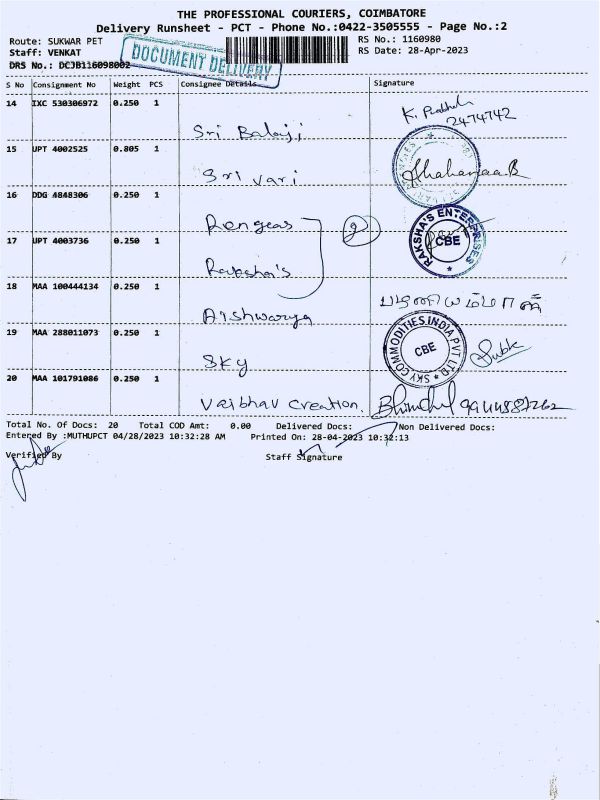 THE PROFESSIONAL COURIERS, COIMBATORE
Delivery Runsheet - PCT - Phone No.:0422-3505555 - Page No.:2
Route: SUKWAR PET
RS No.: 1160980
Staff: VENKAT
RS Date: 28-Apr-2023
DRS No.: DCJB116098002
DOCUMENT DELIVERY
S No Consignment No Weight PCS Consignee Details Signature
14 IXC 530306972 0.250 1
Sri Balaji
2474742
15 UPT 4002525 0.805 1
Sri Vari
16 DDG 4848306 0.250 1
Rengeas
2
RAKSHA'S ENTERPRISES
CBE
17 UPT 4003736 0.250 1
Raksha's
18 MAA 100444134 0.250 1
Aishwarya
19 MAA 288011073 0.250 1
Sky
SKY COMMODITIES INDIA PVT LTD
CBE
20 MAA 101791086 0.250 1
Vaibhav Creation.
Total No. Of Docs: 20 Total COD Amt: 0.00 Delivered Docs: Non Delivered Docs:
Entered By :MUTHUPCT 04/28/2023 10:32:28 AM Printed On: 28-04-2023 10:32:13
Verified By Staff Signature